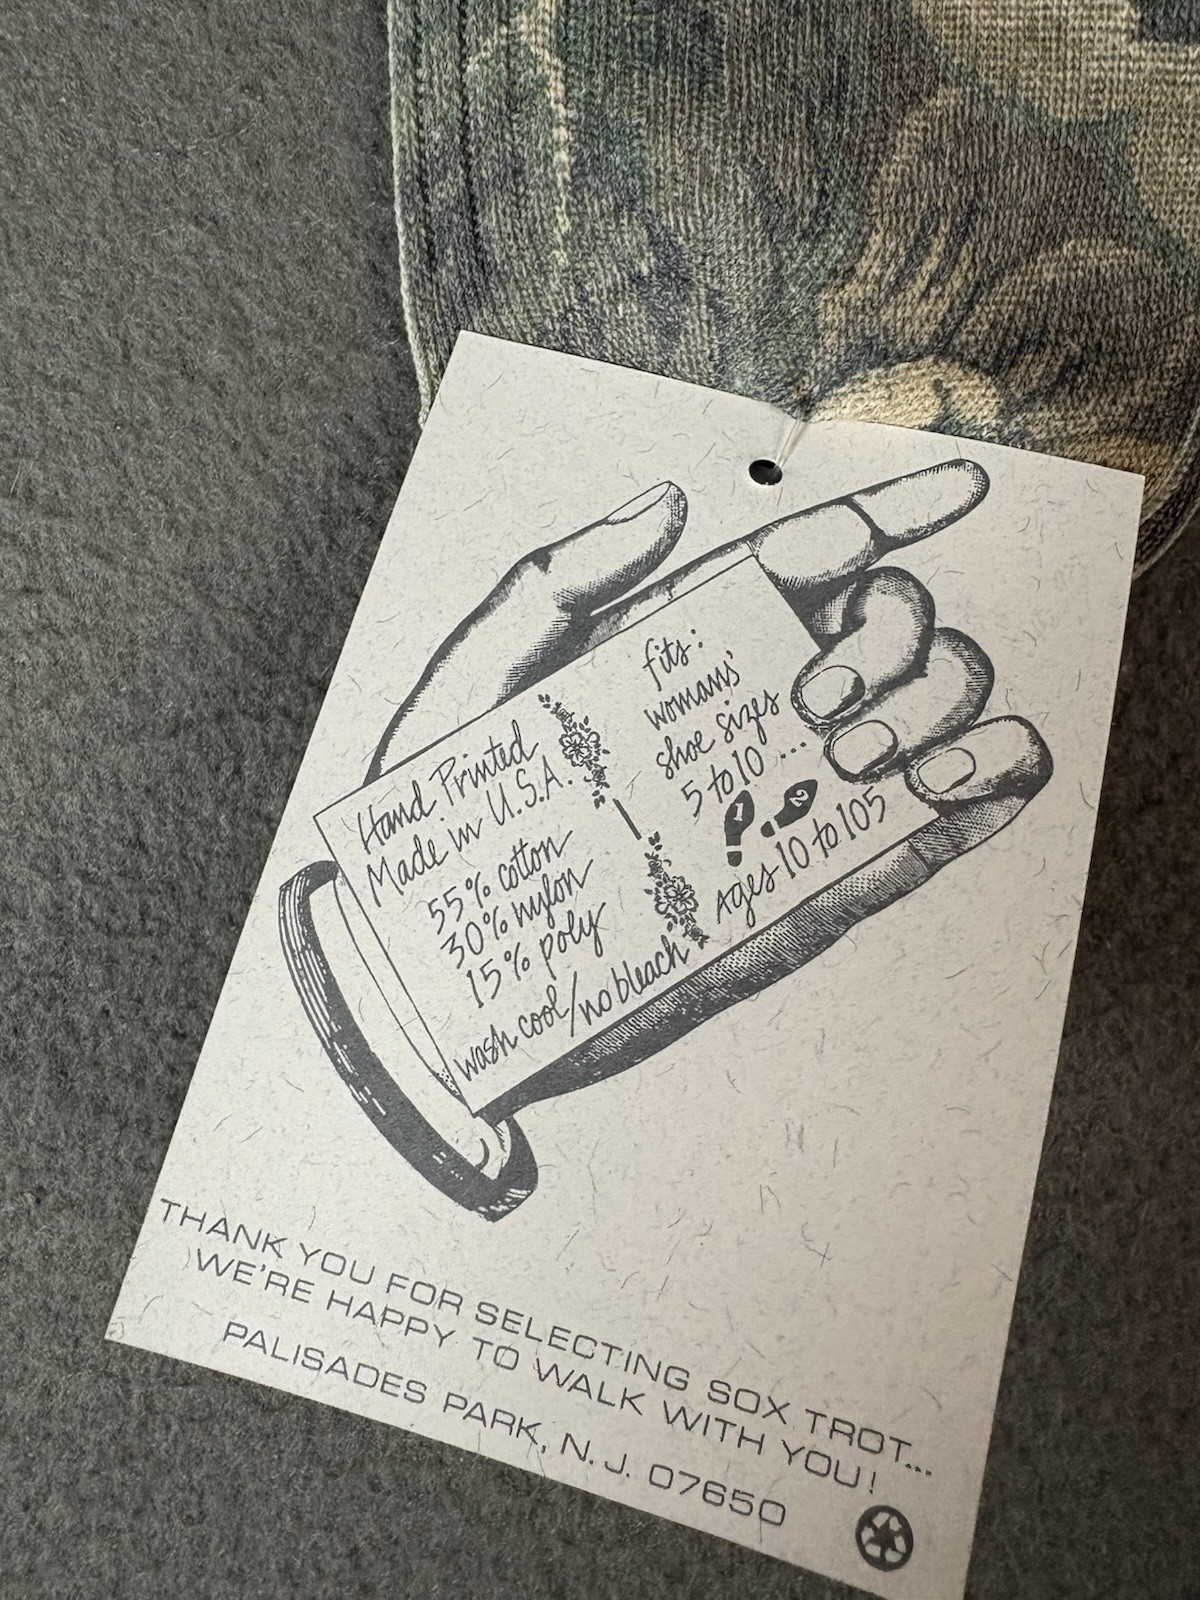 Hand Printed
Made in U.S.A.
55% cotton
30% nylon
15% poly
wash cool/no bleach
fits:
womans'
shoe sizes
5 to 10 ...
1 2
Ages 10 to 105
THANK YOU FOR SELECTING SOX TROT...
WE'RE HAPPY TO WALK WITH YOU!
PALISADES PARK, N.J. 07650